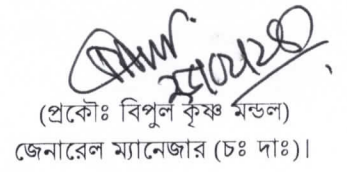 (প্রকৌঃ বিপুল কৃষ্ণ মন্ডল)
জেনারেল ম্যানেজার (চঃ দাঃ)।